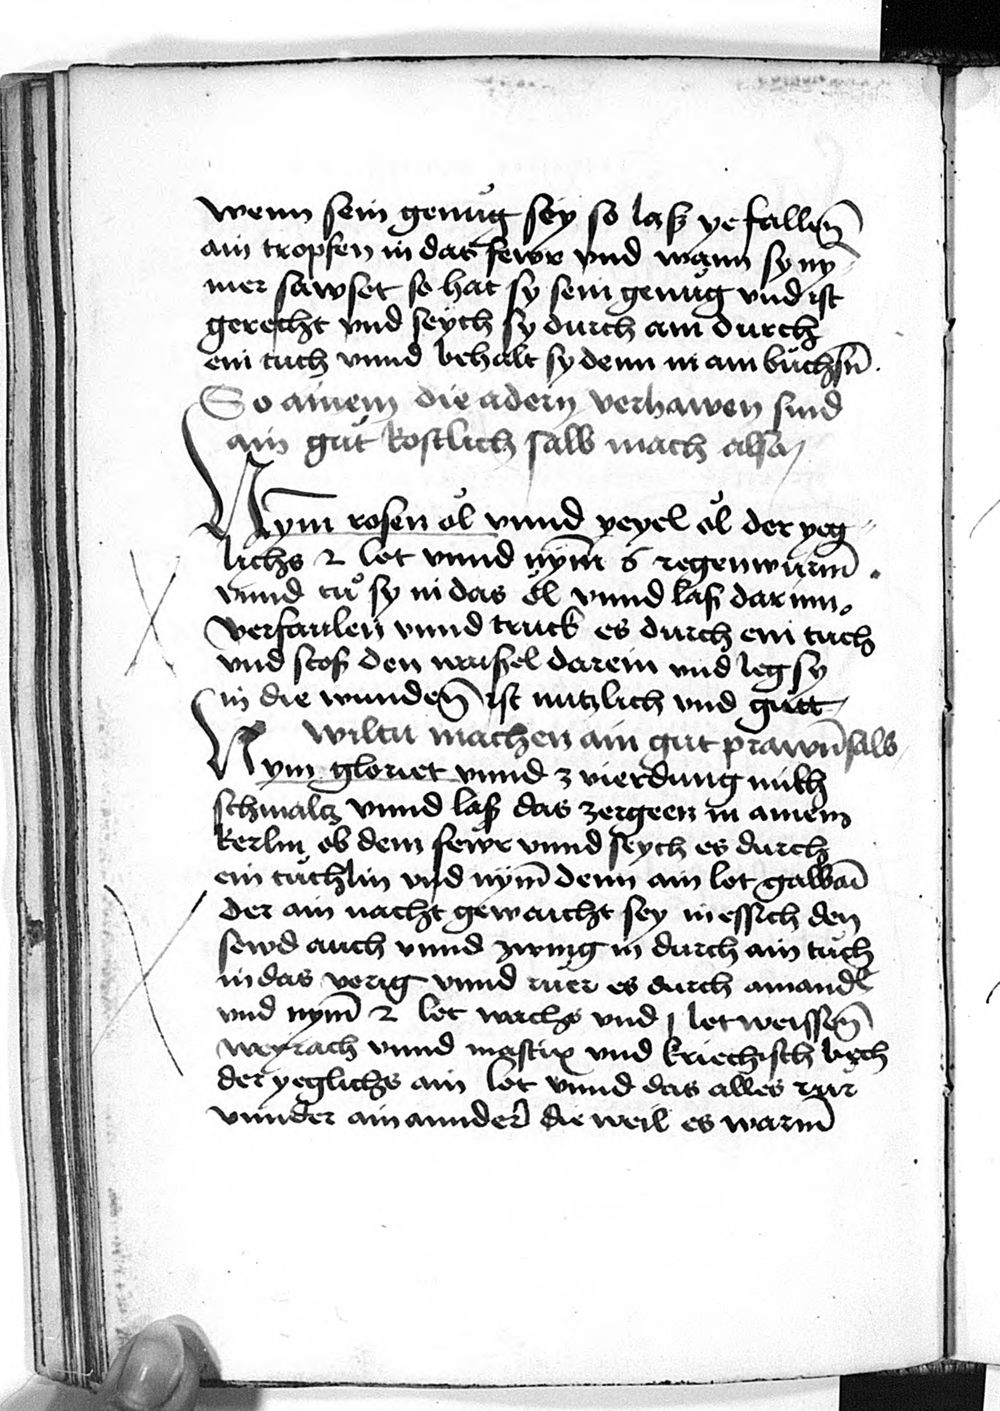 wenn sein genug sey so laß ye fallen̄
ain tropfen in das fewr vnd wann sy ny
mer sawset so hat sy sein genug vnd ist
gerecht vnd seych sy durch ain durch
ein tuch vnnd behalt sy denn in ain buchsn̄.
So ainem die adern verhawen sind
ain gut kostlich salb mach also
Nym̄ rosen öl vnnd veyel öl der yeg
lichs 2 lot vnnd nym̄ 6 regenwurm̄
vnnd tuͦ sy in das öl vnnd laß dar inn
verfaulen vnnd truck es durch ein tuch
vnd stoß den darein vnd leg sy
in die wunden̄ ist nutzlich vnd gutt
wiltu machen ain gut prawn̄ salb
Nym gloriet vnnd 3 vierdung milch
schmalcz vnnd laß das zergeen in ainem
kerlin ob dem fewr vnnd seych es durch
ein tüchlin vnd nym̄ denn ain lot galban̄
der ain nacht gewaicht sey in essich den
sewd auch vnnd zwing in durch ain tuch
in das vorig vnnd rüer es durch ainand
vnd nym̄ 2 lot wachs vnd j lot weissen̄
weyrach vnnd mastix vnd kriechisch bech
der yeglichs ain lot vnnd das alles rur
vnnder ain annder die weil es warm̄